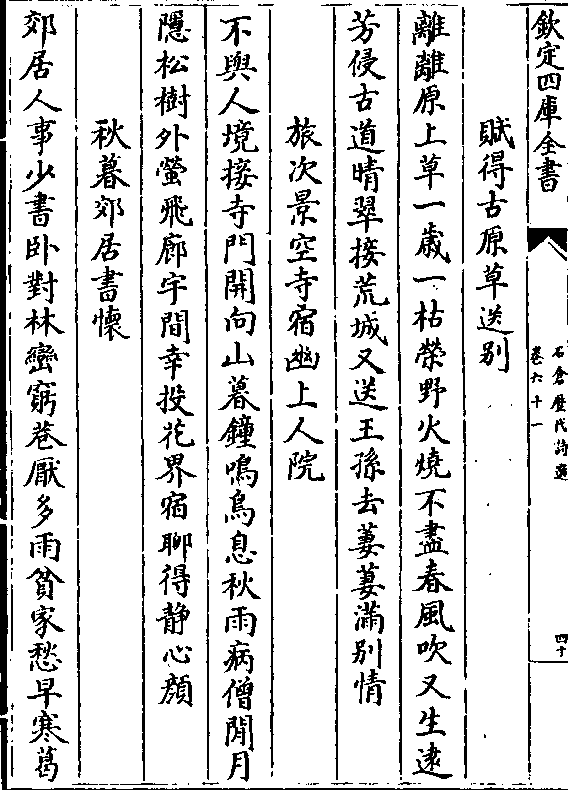 欽定四庫全書
石倉歷代詩選
卷六十一
四十
賦得古原草送别
離離原上草一歲一枯榮野火燒不盡春風吹又生逺
芳侵古道晴翠接荒城又送王孫去萋萋滿别情
旅次景空寺宿幽上人院
不與人境接寺門開向山暮鐘鳴鳥息秋雨病僧閒月
隱松樹外螢飛廊宇間幸投花界宿聊得静心顔
秋暮郊居書懷
郊居人事少書卧對林巒窮巷厭多雨貧家愁早寒葛